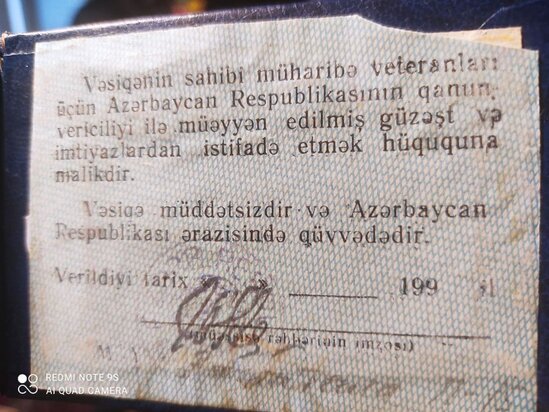 Vəsiqənin sahibi müharibə veteranları
üçün Azərbaycan Respublikasının qanun-
vericiliyi ilə müəyyən edilmiş güzəşt və
imtiyazlardan istifadə etmək hüququna
malikdir.
Vəsiqə müddətsizdir və Azərbaycan
Respublikası ərazisində qüvvədədir.
Verildiyi tarix « » ______ 199 il
(müəssisə rəhbərinin imzası)
M.
REDMI NOTE 9S
AI QUAD CAMERA